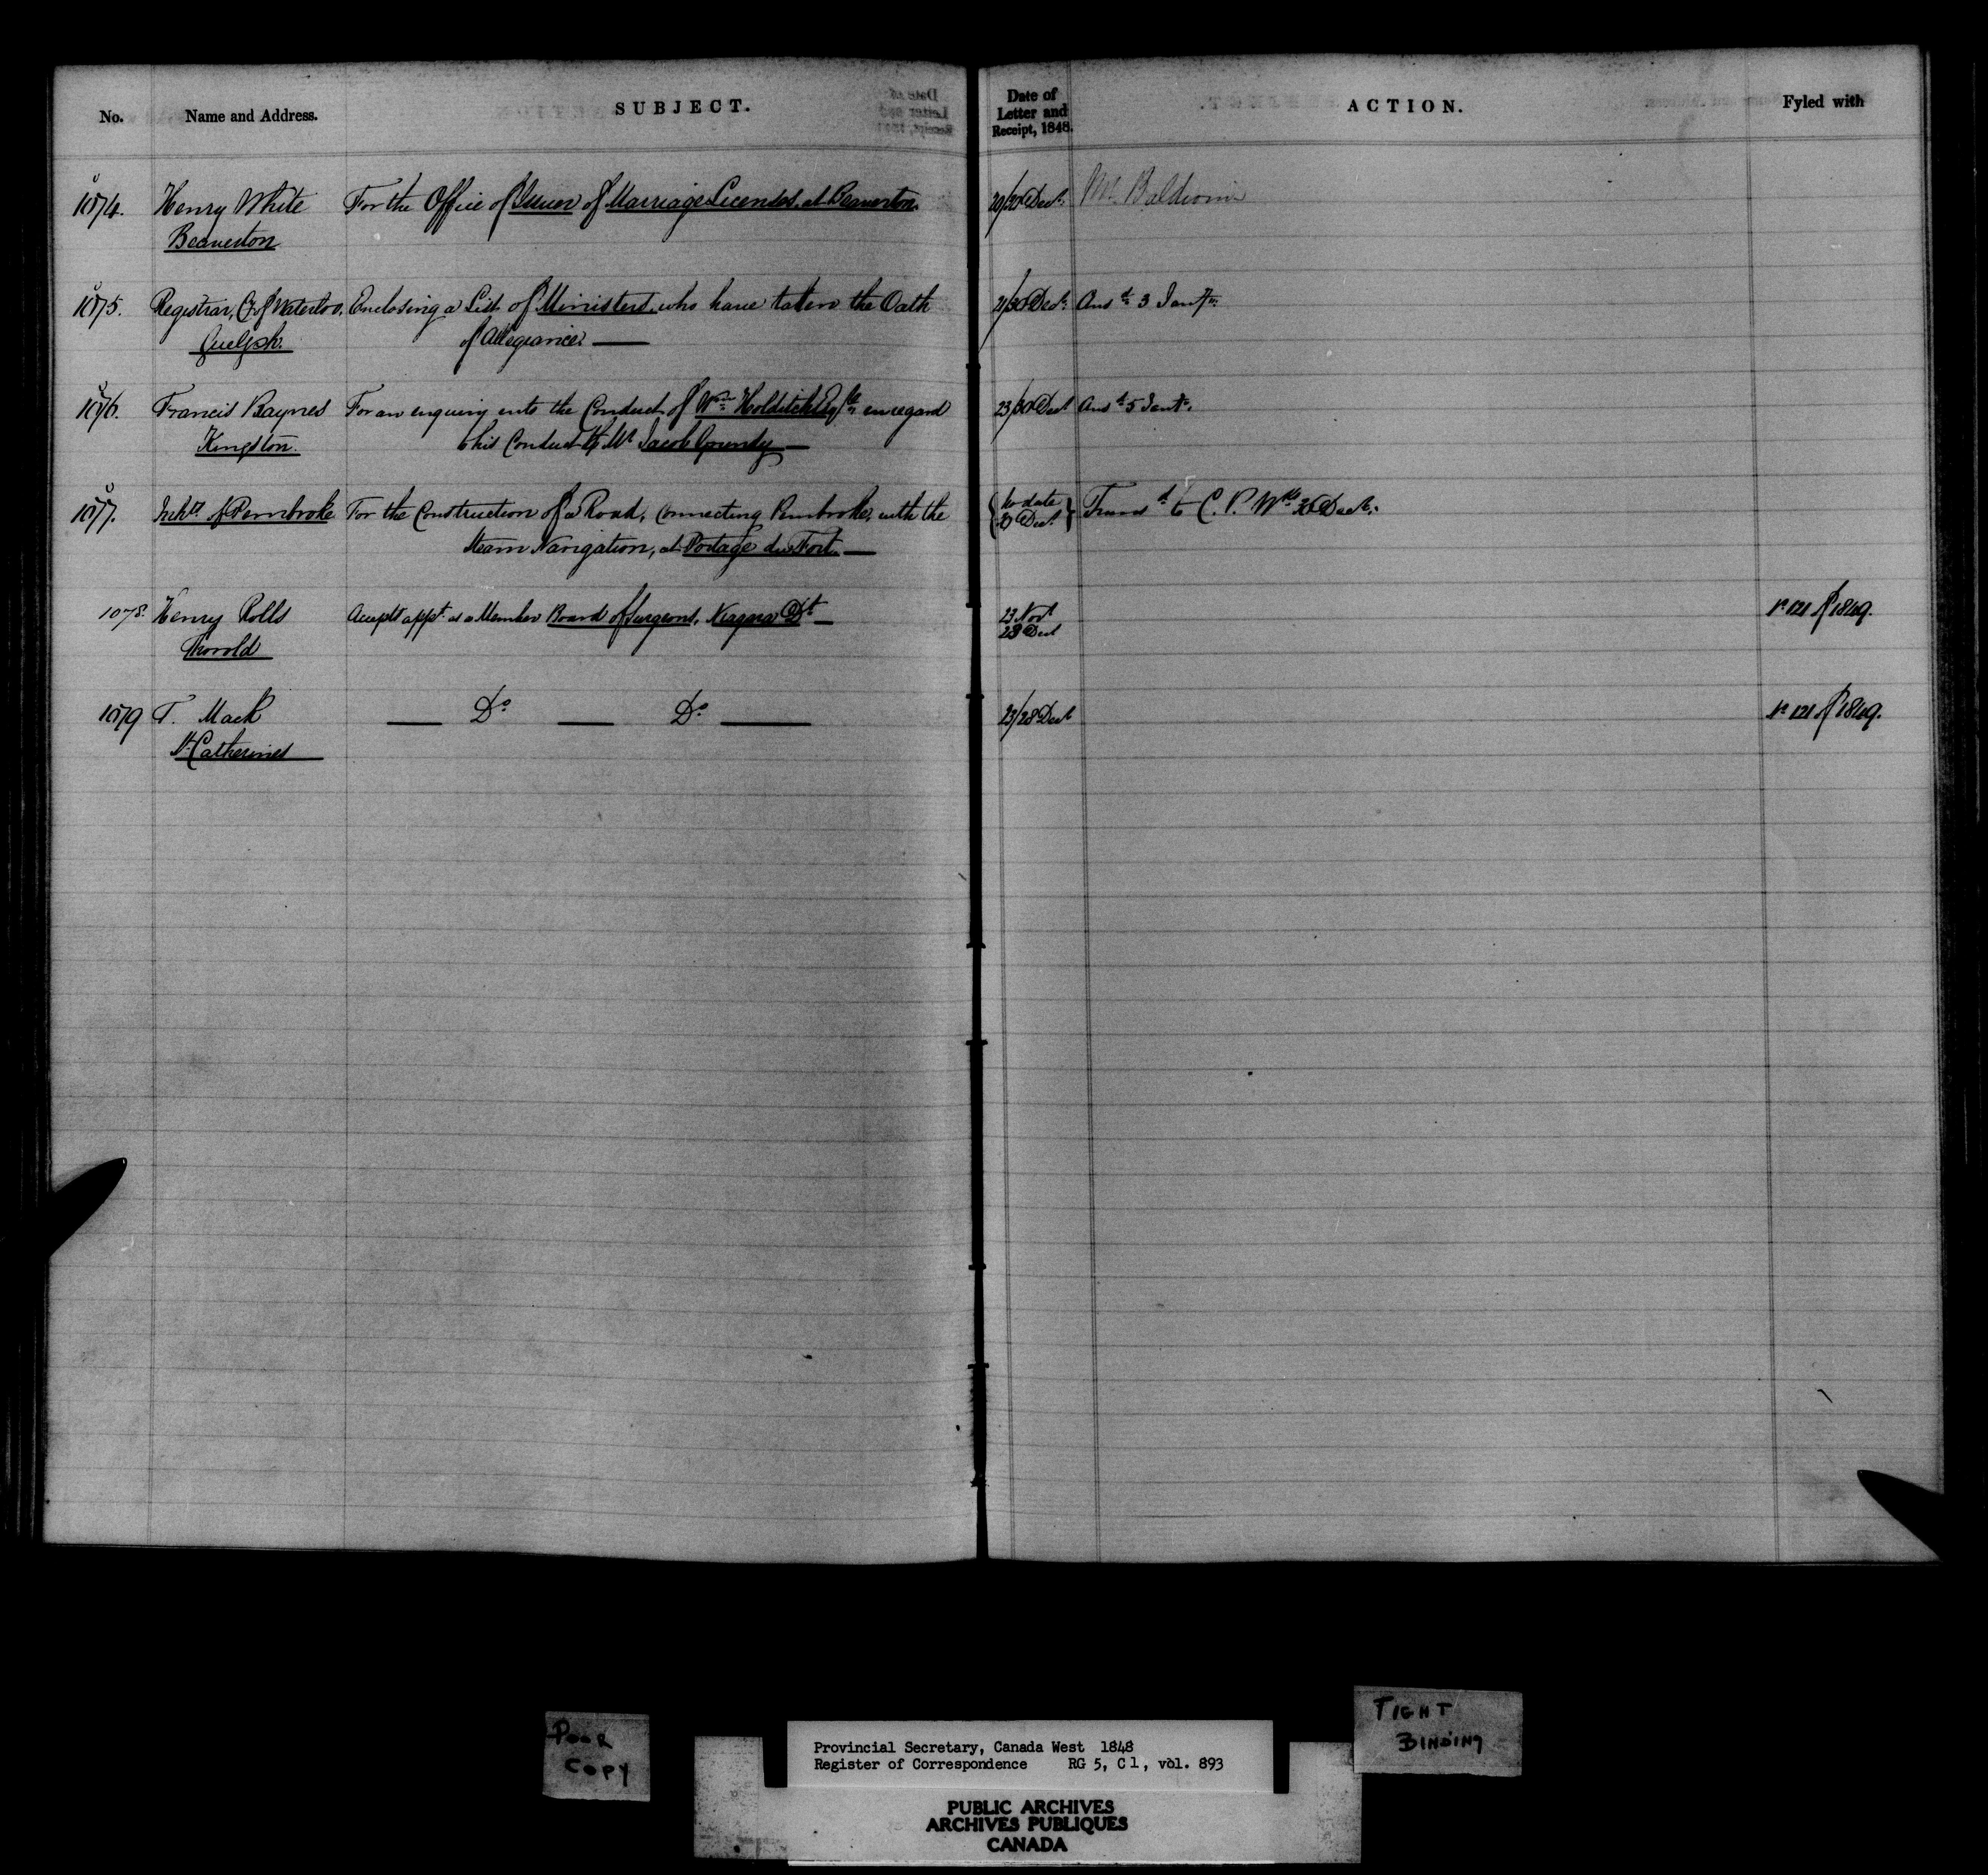 No. Name and Address. SUBJECT. Date of Letter and Receipt, 1848. ACTION. Fyled with
1074. Henry White For the Office of Issuer of Marriage Licenses, at Beaverton. 20/30 Decr. Mr. Baldwin
Beaverton
1075. Registrar, Cy of Waterloo, Enclosing a List of Ministers who have taken the Oath 21/30 Decr. Ansd. 3 Jany.
Guelph. of Allegiance. —
1076. Francis Baynes For an enquiry into the Conduct of Wm. Holditch Esqre. in regard 23/30 Decr Ansd. 5 Jany.
Kingston. to his Conduct to Mr Jacob Grundy —
1077. Inhts. of Pembroke For the Construction of a Road, connecting Pembroke, with the {No date Transd. to C. P. Wks. 30 Decr.
Steam Navigation, at Portage du Fort. — 29 Decr}
1078. Henry Rolls Accepts appt. as a Member Board of Surgeons, Niagara Dt. — 23 Novr No 121 of 1849.
Thorold 28 Decr
1079 T. Mack — Do — Do — 23/28 Decr No 121 of 1849.
St. Catherines
POOR
COPY
TIGHT
BINDING
Provincial Secretary, Canada West 1848
Register of Correspondence RG 5, C 1, vol. 893
PUBLIC ARCHIVES
ARCHIVES PUBLIQUES
CANADA